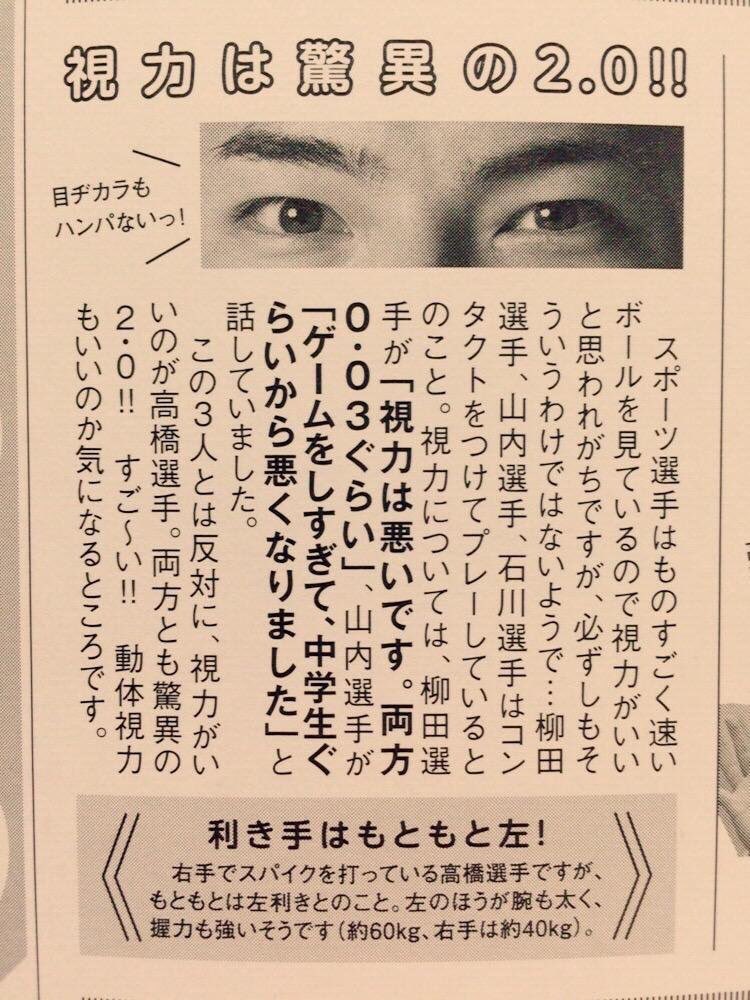 視力は驚異の2.0!!
目ヂカラも
ハンパないっ!
スポーツ選手はものすごく速い
ボールを見ているので視力がいい
と思われがちですが、必ずしもそ
ういうわけではないようで…柳田
選手、山内選手、石川選手はコン
タクトをつけてプレーしていると
のこと。視力については、柳田選
手が「視力は悪いです。両方
0.03ぐらい」、山内選手が
「ゲームをしすぎて、中学生ぐ
らいから悪くなりました」と
話していました。
この3人とは反対に、視力がい
いのが高橋選手。両方とも驚異の
2.0!! すご〜い!! 動体視力
もいいのか気になるところです。
利き手はもともと左!
右手でスパイクを打っている高橋選手ですが、
もともとは左利きとのこと。左のほうが腕も太く、
握力も強いそうです(約60kg、右手は約40kg)。